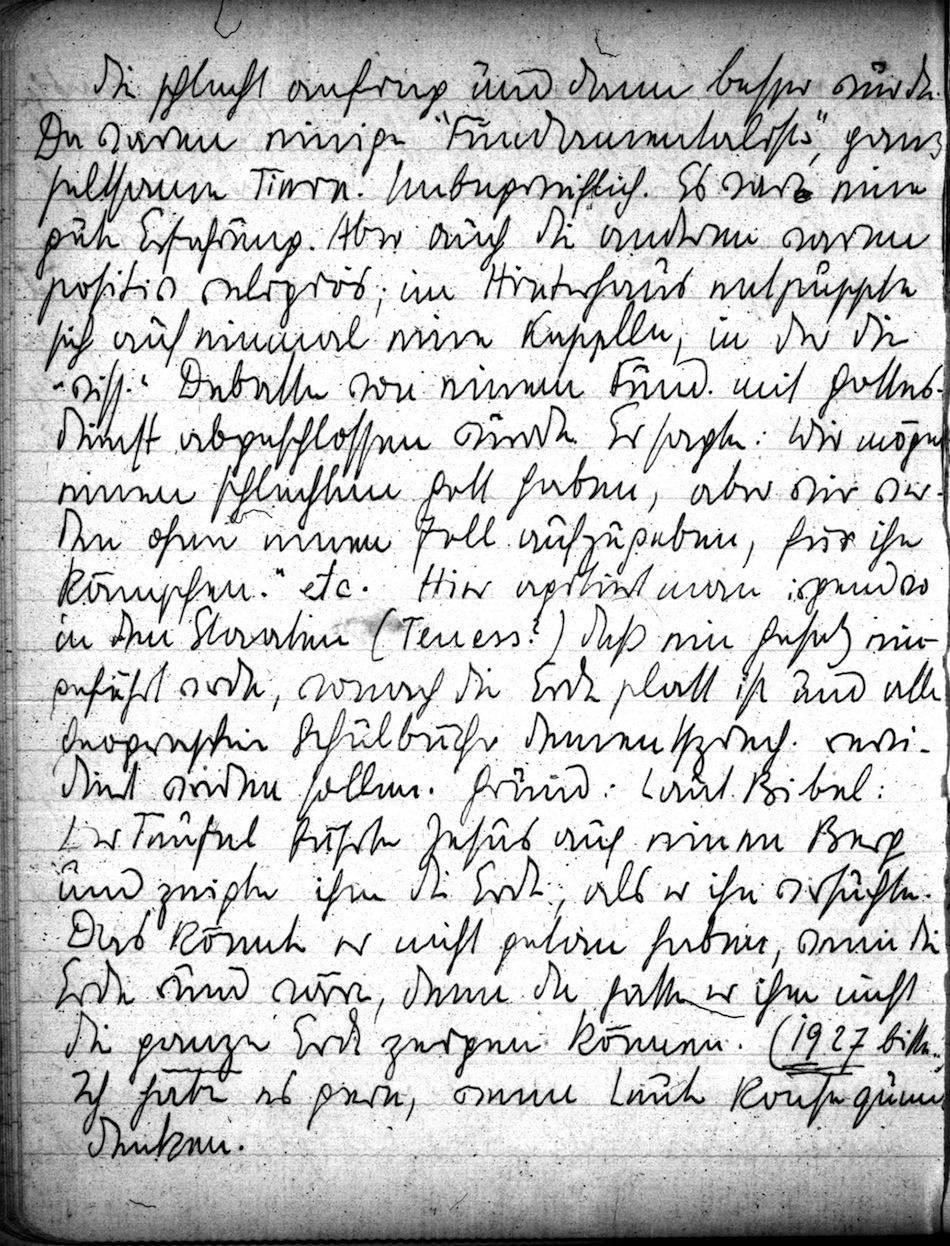 die schlecht anfing und dann besser wurde.
Da waren einige "Fundamentalists", ganz
seltsame Tiere. Unbegreiflich. Es war eine
gute Erfahrung. Aber auch die anderen waren
positiv religiös; im Hinterhaus entpuppte
sich auf einmal eine Kapelle, in der die
"wiss." Debatte von einem Fund. mit Gottes-
dienst abgeschlossen wurde. Er sagte: Wir mögen
einen schlechten Gott haben, aber wir wer-
den ohne einen Zoll aufzugeben, für ihn
kämpfen." etc. Hier agitiert man irgendwo
in den Staaten (Teness?) daß ein Gesetz ein-
geführt werde, wonach die Erde platt ist und alle
Geographie Schulbücher dementsprech. revi-
diert werden sollen. Grund: Laut Bibel:
Der Teufel führte Jesus auf einen Berg
und zeigte ihm die Erde, als er ihn versuchte.
Das könnte er nicht getan haben, wenn die
Erde rund wäre, denn da hätte er ihm nicht
die ganze Erde zeigen können. (1927 bitte.
Ich habe es gern, wenn Leute konsequent
denken.